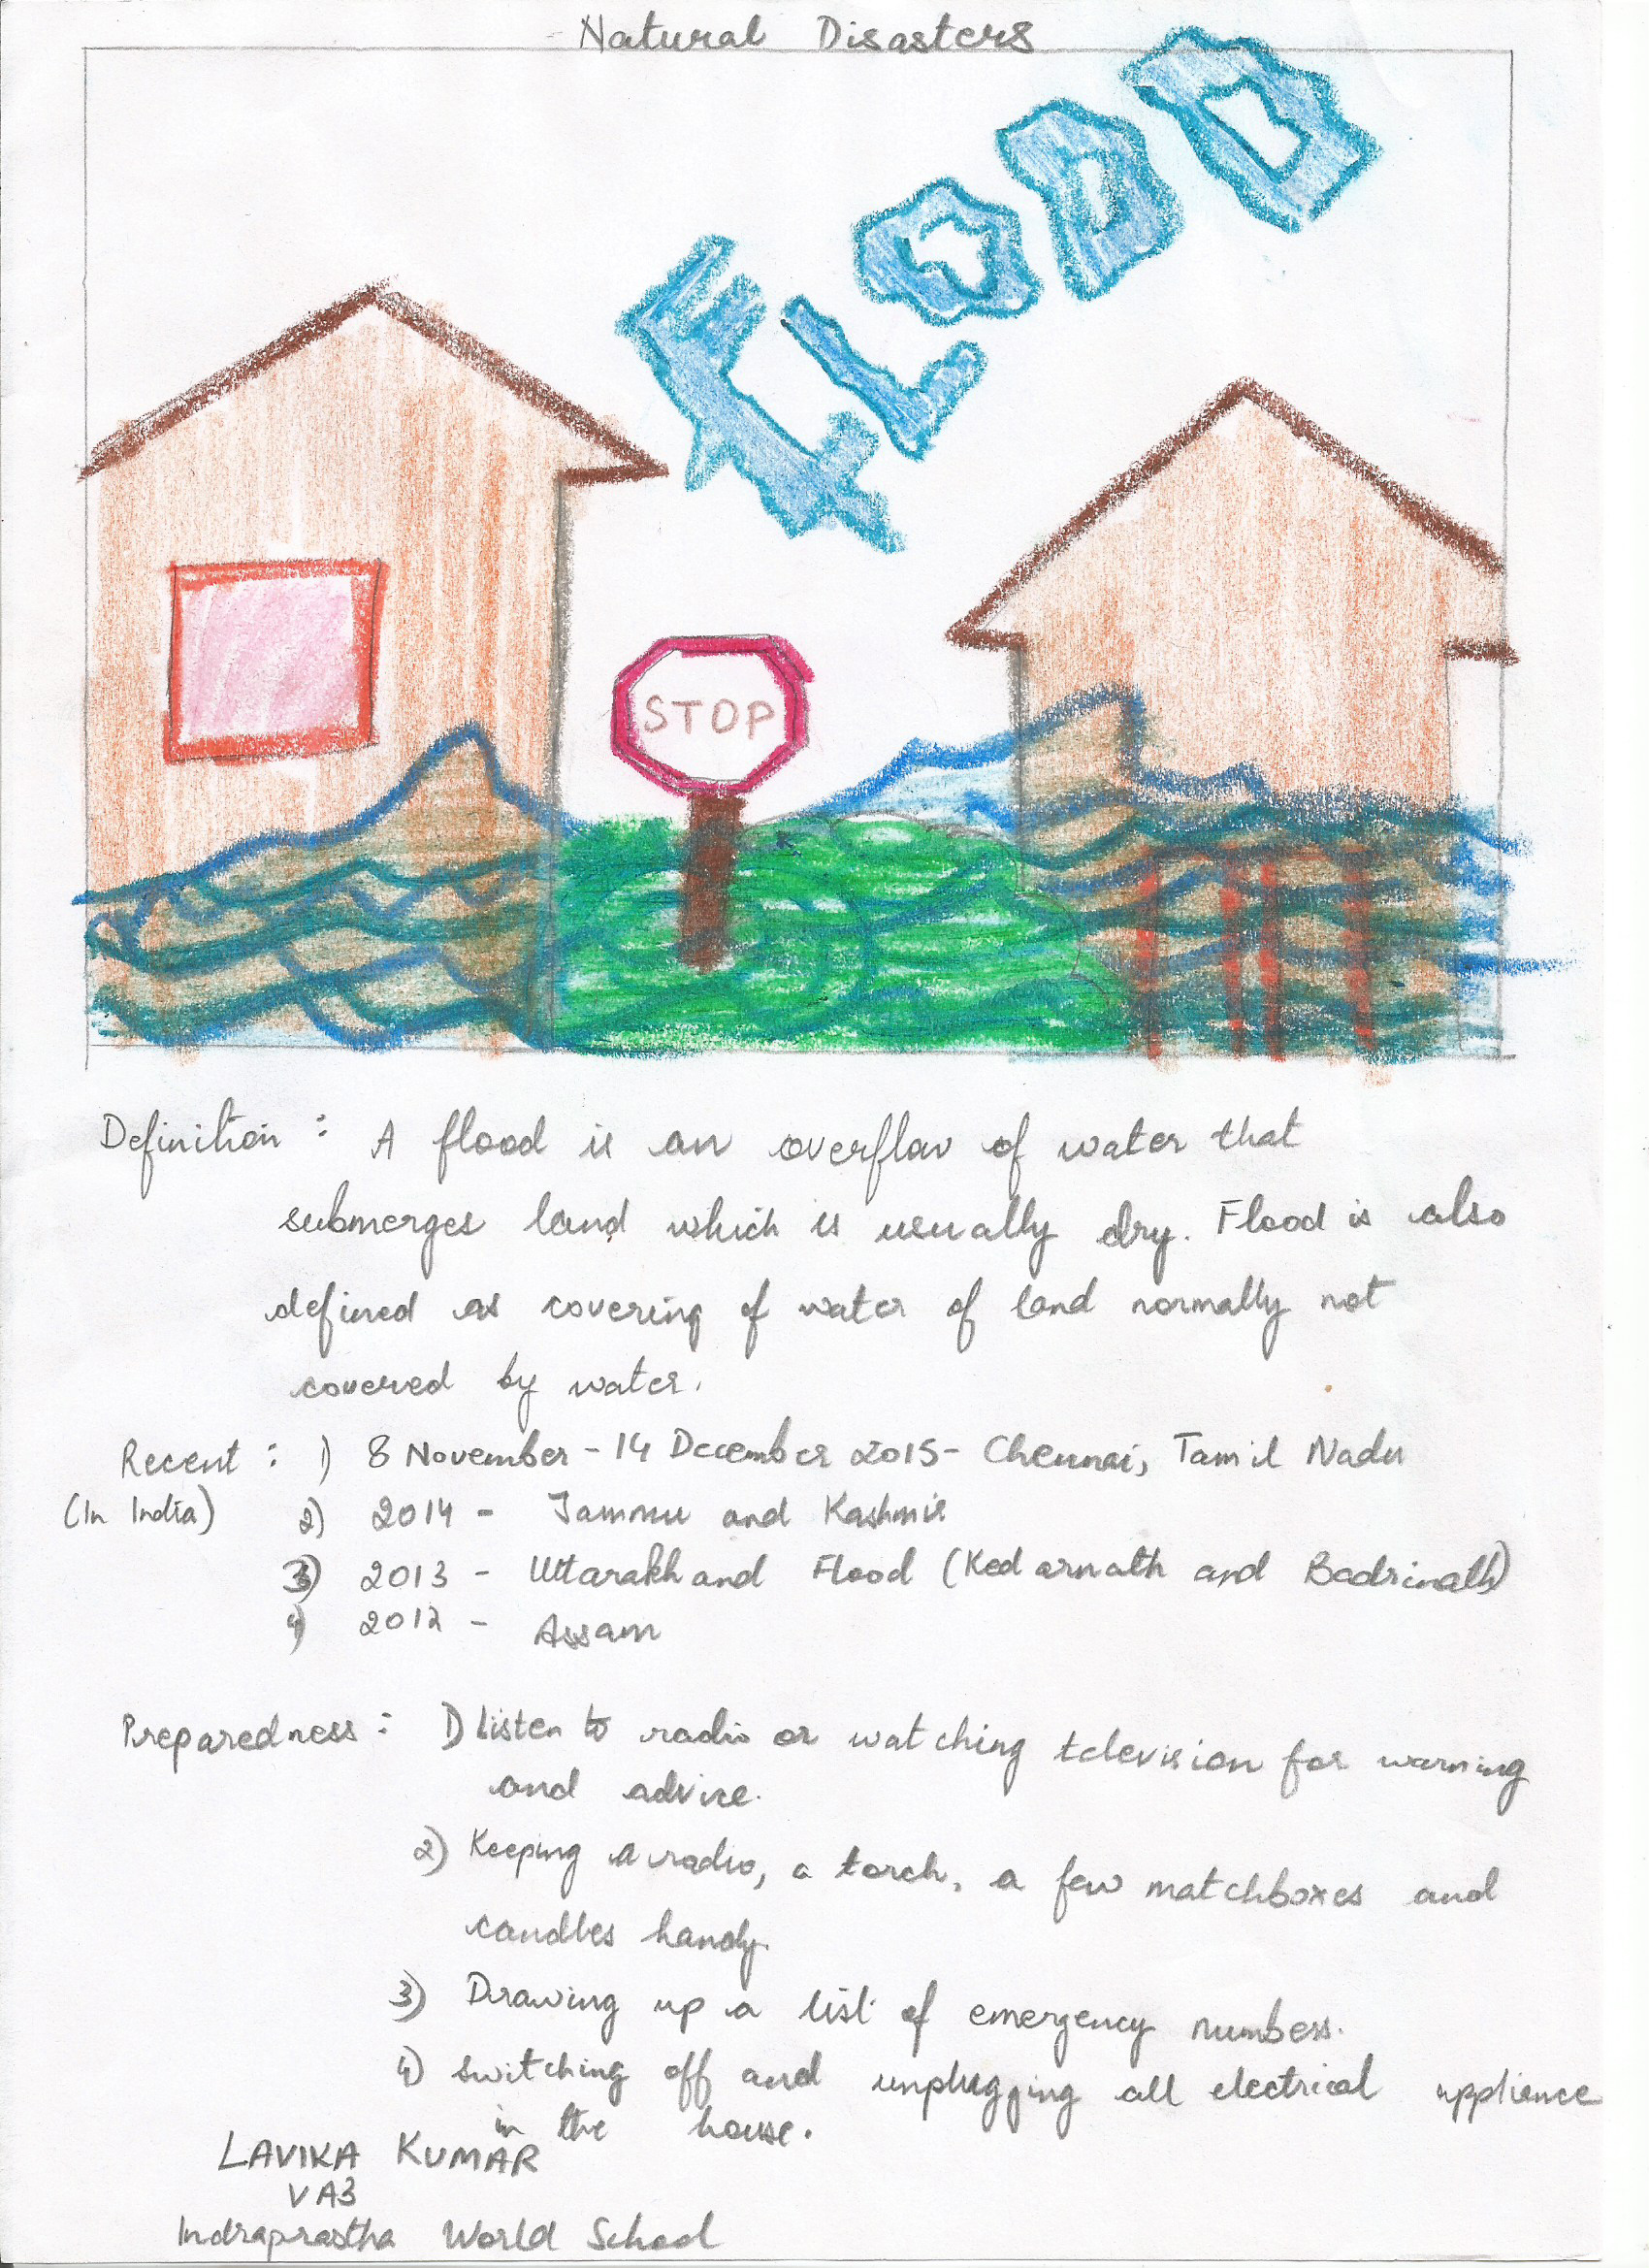 Natural Disasters
FLOOD
STOP
Definition : A flood is an overflow of water that
submerges land which is usually dry. Flood is also
defined as covering of water of land normally not
covered by water.
Recent : 1) 8 November - 14 December 2015 - Chennai, Tamil Nadu
(In India) 2) 2014 - Jammu and Kashmir
3) 2013 - Uttarakhand Flood (Kedarnath and Badrinath)
4) 2012 - Assam
Preparedness : 1) Listen to radio or watching television for warning
and advice.
2) Keeping a radio, a torch, a few matchboxes and
candles handy.
3) Drawing up a list of emergency numbers.
4) switching off and unplugging all electrical applience
in the house.
LAVIKA KUMAR
VA3
Indraprastha World School